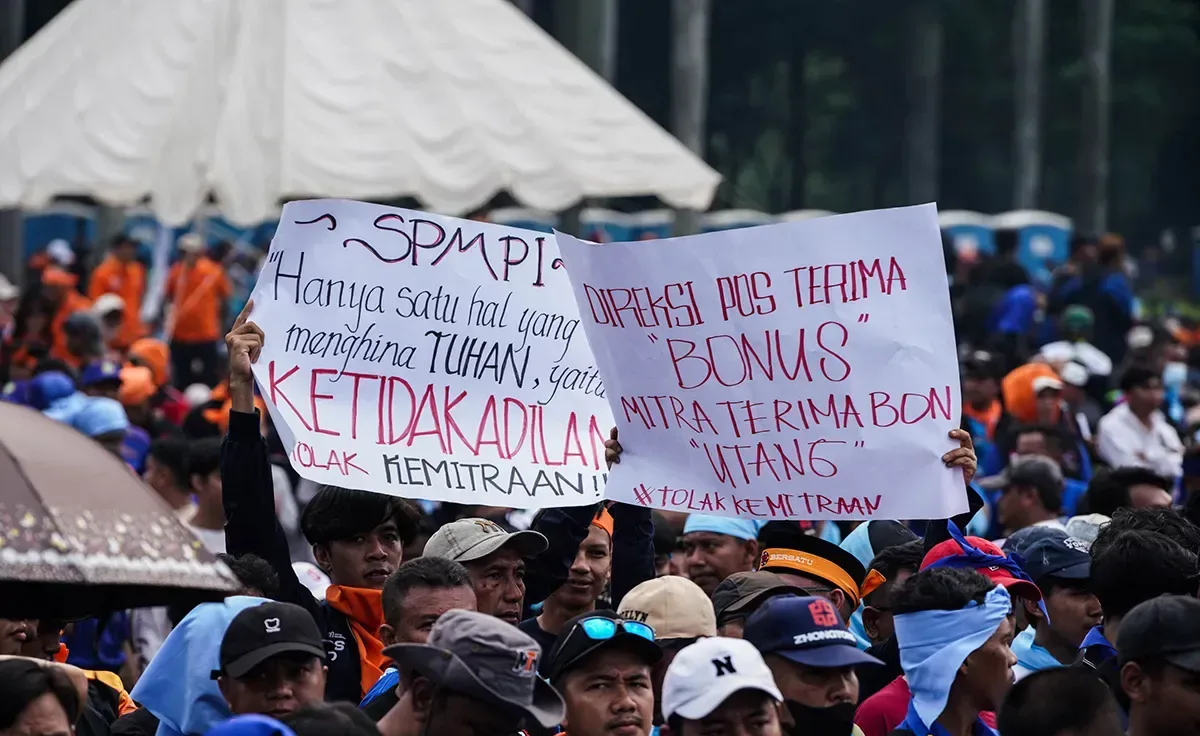 SPMPI
"Hanya satu hal yang
menghina TUHAN, yaitu
KETIDAKADILAN
TOLAK KEMITRAAN!!
DIREKSI POS TERIMA
"BONUS"
MITRA TERIMA BON
"UTANG"
#TOLAK KEMITRAAN
BERSATU
ZHONGTONG
N
ZHONGSHI